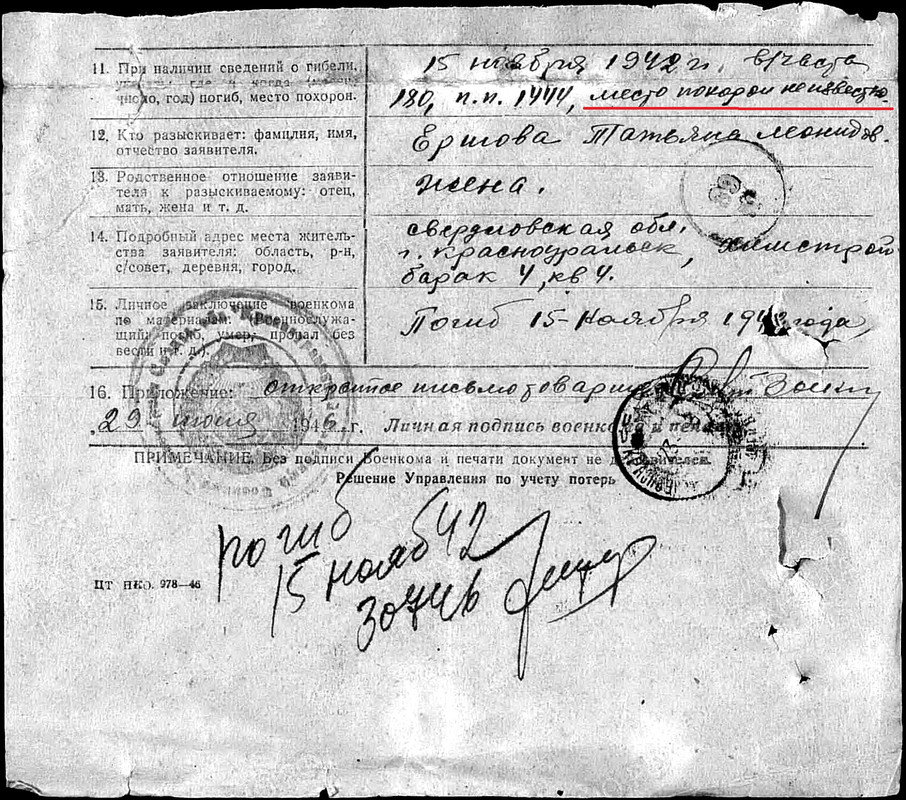 11. При наличии сведений о гибели,
15 ноября 1942 г, в/часть
число, год) погиб, место похорон.
180, п.п. 1444, место похорон неизвестно.
12. Кто разыскивает: фамилия, имя,
отчество заявителя.
Ершова Татьяна Леонидов.
13. Родственное отношение заяви-
теля к разыскиваемому: отец,
мать, жена и т. д.
жена.
14. Подробный адрес места житель-
ства заявителя: область, р-н,
с/совет, деревня, город.
свердловская обл.
г. Красноуральск, Химстрой
барак 4, кв 4.
15. Личное заключение военкома
по материалам: (Военнослужа-
щий: погиб, умер, пропал без
вести и т. д.).
Погиб 15-Ноября 1942 года
16. Приложение: открытое письмо товарища
29 июня 1946 г. Личная подпись военкома и печать
ПРИМЕЧАНИЕ. Без подписи Военкома и печати документ не
Решение Управления по учету потерь
погиб
15 нояб 42
ЦТ НКО. 978—46